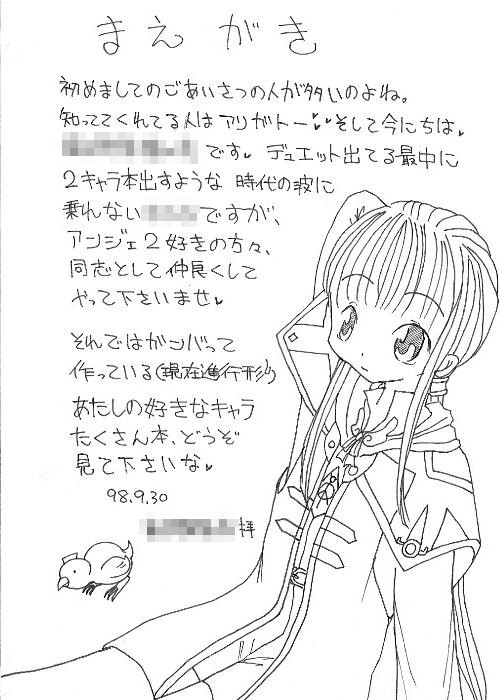 まえがき
初めましてのごあいさつの人が多いのよね。
知っててくれてる人はアリガトー♥そして今にちは♥
です♥デュエット出てる最中に
2キャラ本出すような時代の波に
乗れない ですが、
アンジェ2好きの方々、
同志として仲良くして
やって下さいませ♥
それではガンバって
作っている(現在進行形)
あたしの好きなキャラ
たくさん本、どうぞ
見て下さいな♥
98.9.30
拝